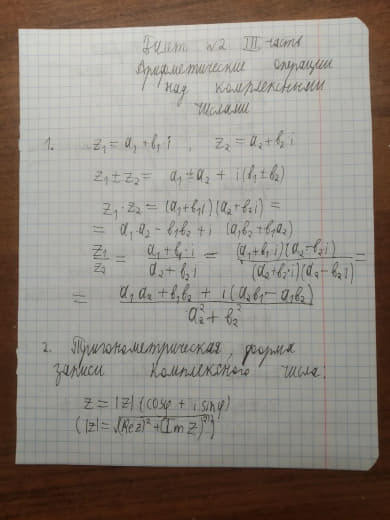 Билет №2 III часть
Арифметические операции
над комплексными
числами
1. z₁ = a₁ + b₁·i , z₂ = a₂ + b₂·i
z₁ ± z₂ = a₁ ± a₂ + i(b₁ ± b₂)
z₁ · z₂ = (a₁ + b₁i)(a₂ + b₂i) =
= a₁a₂ − b₁b₂ + i (a₁b₂ + b₁a₂)
z₁/z₂ = (a₁ + b₁·i)/(a₂ + b₂i) = ((a₁ + b₁i)(a₂ − b₂i))/((a₂ + b₂·i)(a₂ − b₂i)) =
= (a₁a₂ + b₁b₂ + i(a₂b₁ − a₁b₂))/(a₂² + b₂²)
2. Тригонометрическая форма
записи комплексного числа:
z = |z| (cosφ + i sinφ)
(|z| = √((Re z)² + (Im z)²))